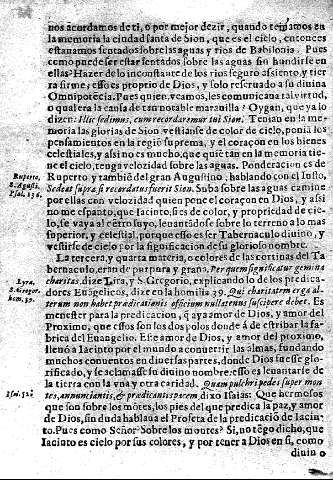 nos acordamos de ti, o por mejor dezir, quando teniamos en
la memoria la ciudad santa de Sion, que es el cielo, entonces
estauamos sentados sobre las aguas y rios de Babilonia. Pues
como puede ser estar sentados sobre las aguas sin hundirse en
ellas? Hazer de lo inconstante de los rios seguro assiento, y tier
ra firme; esso es proprio de Dios, y solo reseruado a su diuina
Omnipotẽcia. Pues quien, veamos, les comunica tal virtud,
o qual era la causa de tan notable marauilla? Oygan, que ya lo
dizen: Illic sedimus, cum recordaremur tui Sion. Tenian en la me-
moria las glorias de Sion, vestianse de color de cielo, ponia los
pensamientos en la regiõ suprema, y el coraçon en los bienes
celestiales, y assi no es mucho, que quiẽ tan en la memoria tie
ne el cielo, tenga velozidad sobre las aguas. Ponderacion es de
Ruperto,
Ruperto, y tambiẽ del gran Augustino, hablando con el Iusto,
S. Agusti.
Sedeat supra, si recordatus fuerit Sion. Suba sobre las aguas camine
Psal. 136.
por ellas con velozidad quien pone el coraçon en Dios, y assi
no me espanto, que Iacinto, si es de color, y propriedad de cie-
lo, se vaya al cẽtro suyo, leuantãdose sobre lo terreno a lo mas
superior, y celestial, porque esso es ser Tabernaculo diuino, y
vestirse de cielo por la significacion de su glorioso nombre.
La tercera, y quarta materia, o colores de las cortinas del Ta
bernaculo, eran de purpura y grana. Per quem significatur gemina
Lyra,
charitas, dize Lira, y S. Gregorio, explicando lo de los predica-
S. Gregor.
dores Euãgelicos, dize en la homilia 39. Qui charitatem erga al-
hom. 39.
terum non habet prædicationis officium nullatenus suscipere debet. Es
menester para la predicacion, q̃ aya amor de Dios, y amor del
Proximo, que essos son los dos polos donde à de estribar la fa-
brica del Euangelio. Esse amor de Dios, y amor del proximo,
lleuó a Iacinto por el mundo a conuertir las almas, fundando
muchos conuentos en diuersas partes, donde Dios fuesse glo-
rificado, y se aclamasse su diuino nombre: esso es leuantarse de
la tierra con la vna y otra caridad. Quam pulchri pedes super mon
Psal. 52.
tes, annunciantis, & prædicantis pacem, dixo Isaias: Que hermosos
que son sobre los mõtes, los pies del que predica la paz, y amor
de Dios, sin duda hablaua el Profeta de la predicaciõ de Iacin-
to. Pues como Señor? Sobre los montes? Si, no tẽgo dicho, que
Iacinto es cielo por sus colores, y por tener a Dios en si, como
diuino